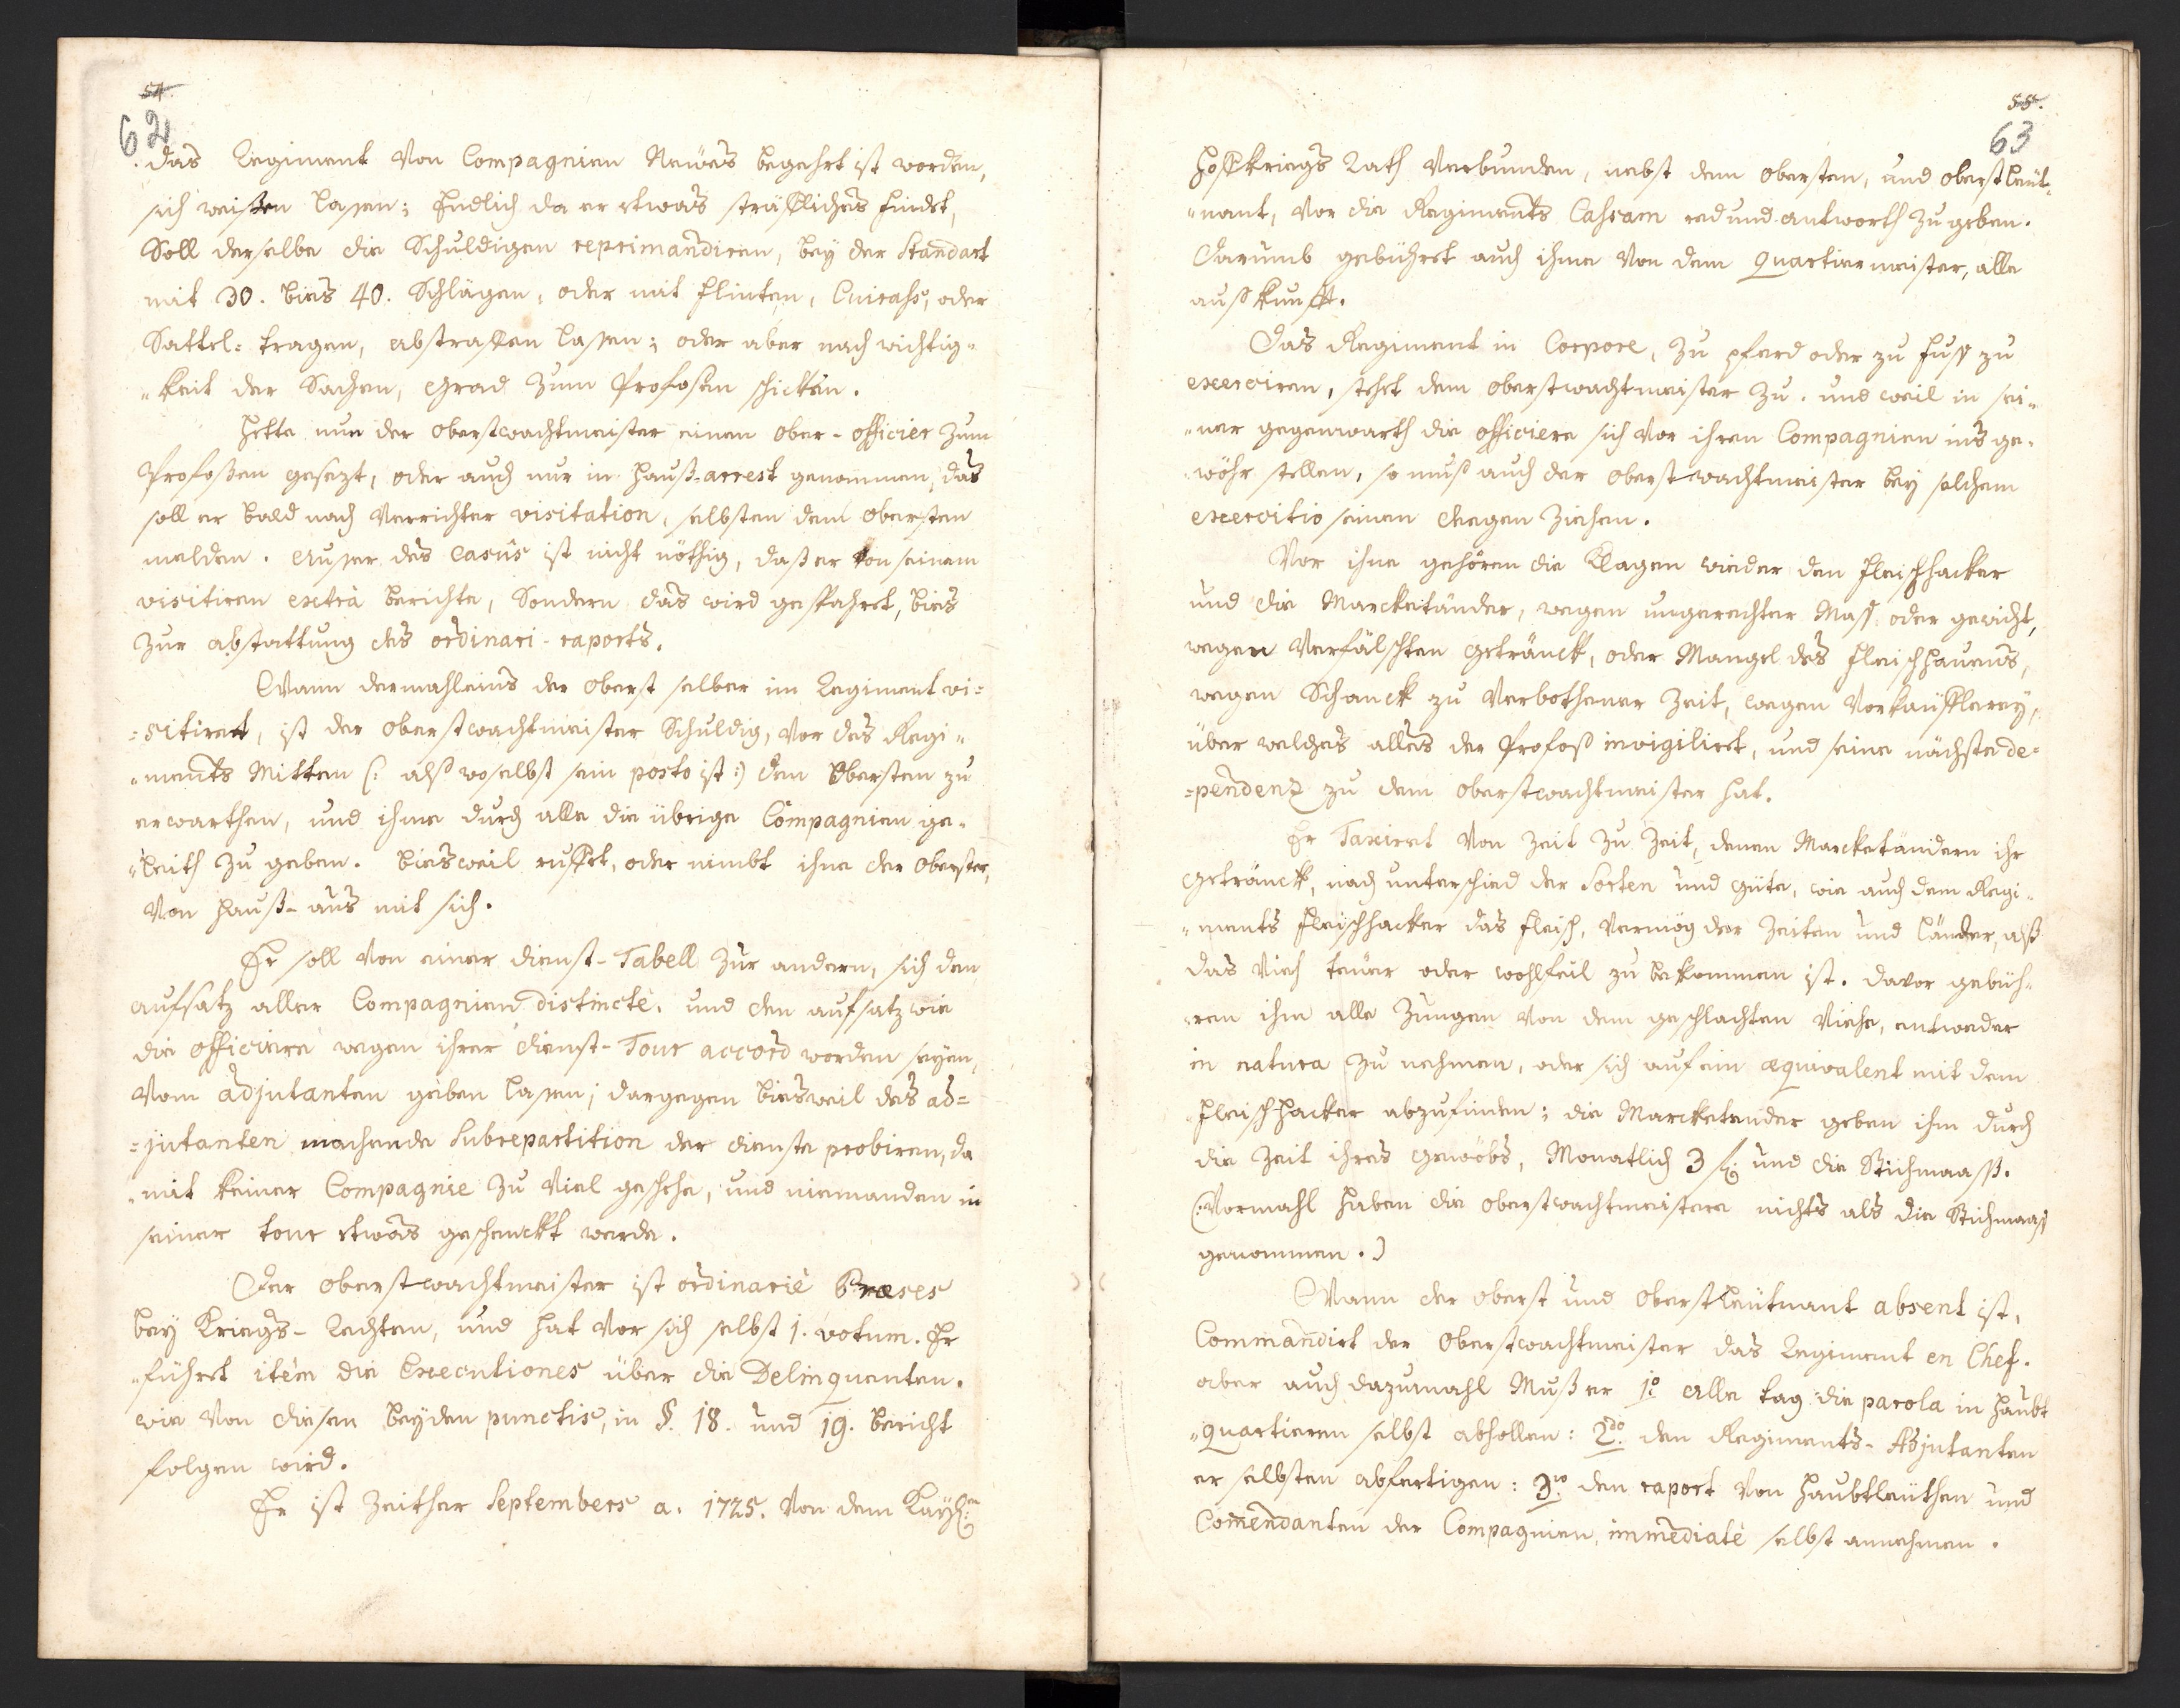 54.
62
das Regiment von Compagnien Neües begehrt ist worden,
sich weißen lassen; Endlich da er etwas sträffliches findet,
Soll derselbe die Schuldigen reprimandiren, bey der Standart
mit 30. bies 40. Schlägen, oder mit flinten, Cuirass, oder
Sattel= tragen, abstraffen lassen; oder aber nach wichtig=
"keit der Sachen, grad zum Profosen schicken.
Hette nun der Oberstwachtmeister einen Ober-officier zum
Profoßen gesezt, oder auch nur in Hauß-arrest genommen, das
soll er bald nach verrichter visitation, selbsten dem Obersten
melden. Ausser des casûs ist nicht nöthig, daß er von seinem
visitiren extrà berichte, Sondern das wird gespahret, bies
zur abstattung des ordinari-raports.
Wann dermahleins der Oberst selber im Regiment vi=
=sitiret, ist der Oberstwachtmeister Schuldig, vor des Regi=
"ments Mitten (: alß woselbst sein posto ist :) den Obersten zu
erwarthen, und ihme durch alle die übrige Compagnien ge=
"leith zu geben. biesweil ruffet, oder nimbt ihne der Oberster,
von Hauß-aus mit sich.
Er soll von einer dienst-Tabell zur andern, sich den
aufsatz aller Compagnien distinctè, und den aufsatz wie
die officiere wegen ihrer dienst-Tour accord worden seyen,
vom adjutanten geben lassen; dargegen biesweil des ad=
=jutanten machende Subrepartition der dienste probiren, da
"mit keiner Compagnie zu viel geschehe, und niemanden in
seiner tour etwas geschenckt werde.
Der Oberstwachtmeister ist ordinariè Præses
bey Kriegs-Rechten, und hat vor sich selbst 1. votum. Er
"führet item die Executiones über die Delinquenten.
wie von diesen beyden punctis, in §. 18. und 19. bericht
folgen wird.
Er ist zeither Septembers a. 1725. von dem Kayß:en
55.
63
Hoffkriegs Rath verbunden, nebst dem Obersten, und Oberstleüt=
"nant, vor die Regiments Cassam red und antworth zu geben.
Darumb gebühret auch ihme von dem Quartiermeister, alle
ausskunfft.
Das Regiment in Corpore, zu pferd oder zu Fuss zu
exerciren, stehet dem Oberstwachtmeister zu. und weil in sei=
"ner gegenwarth die officiere sich vor ihren Compagnien ins ge=
wöhr stellen, so muß auch der Oberstwachtmeister bey solchem
exercitio seinen Degen ziehen.
Vor ihne gehören die Klagen wieder den Fleischhacker
und die Marcketänder, wegen ungerechter Mass oder gewicht,
wegen verfälschten getränck, oder Mangel des Fleischhauens,
wegen Schanck zu verbothener Zeit, wegen Vorkauffleray,
über welches alles der Profoß invigiliret, und seine nächste de=
=pendenz zu dem Oberstwachtmeister hat.
Er Taxiret von Zeit zu Zeit, denen Marcketändern ihr
getränck, nach unterschied der Sorten und güte, wie auch dem Regi=
"ments Fleischhacker das fleisch, vermög der Zeiten und länder, alß
das Vieh teüer oder wohlfeil zu bekommen ist. davor gebüh=
"ren ihm alle Zungen von dem geschlachten Viehe, entweder
in natura zu nehmen, oder sich auf ein æquivalent mit dem
Fleischhacker abzufinden; die Marcketender geben ihm durch
die Zeit ihres gewöbs, Monatlich 3 f: und die Stichmaass.
(: Vormahl haben die Oberstwachtmeistere nichts als die Stichmaass
genommen.)
Wann der Oberst und Oberstleütnant absent ist,
Commandirt der Oberstwachtmeister das Regiment en Chef.
aber auch dazumahl Muß er 1º alle tag die parola in Haubt
"quartieren selbst abhollen: 2do den Regiments-Adjutanten
er selbsten abfertigen: 3io den raport von Haubtleüthen und
Com̄endanten der Compagnien, immediatè selbst annehmen.